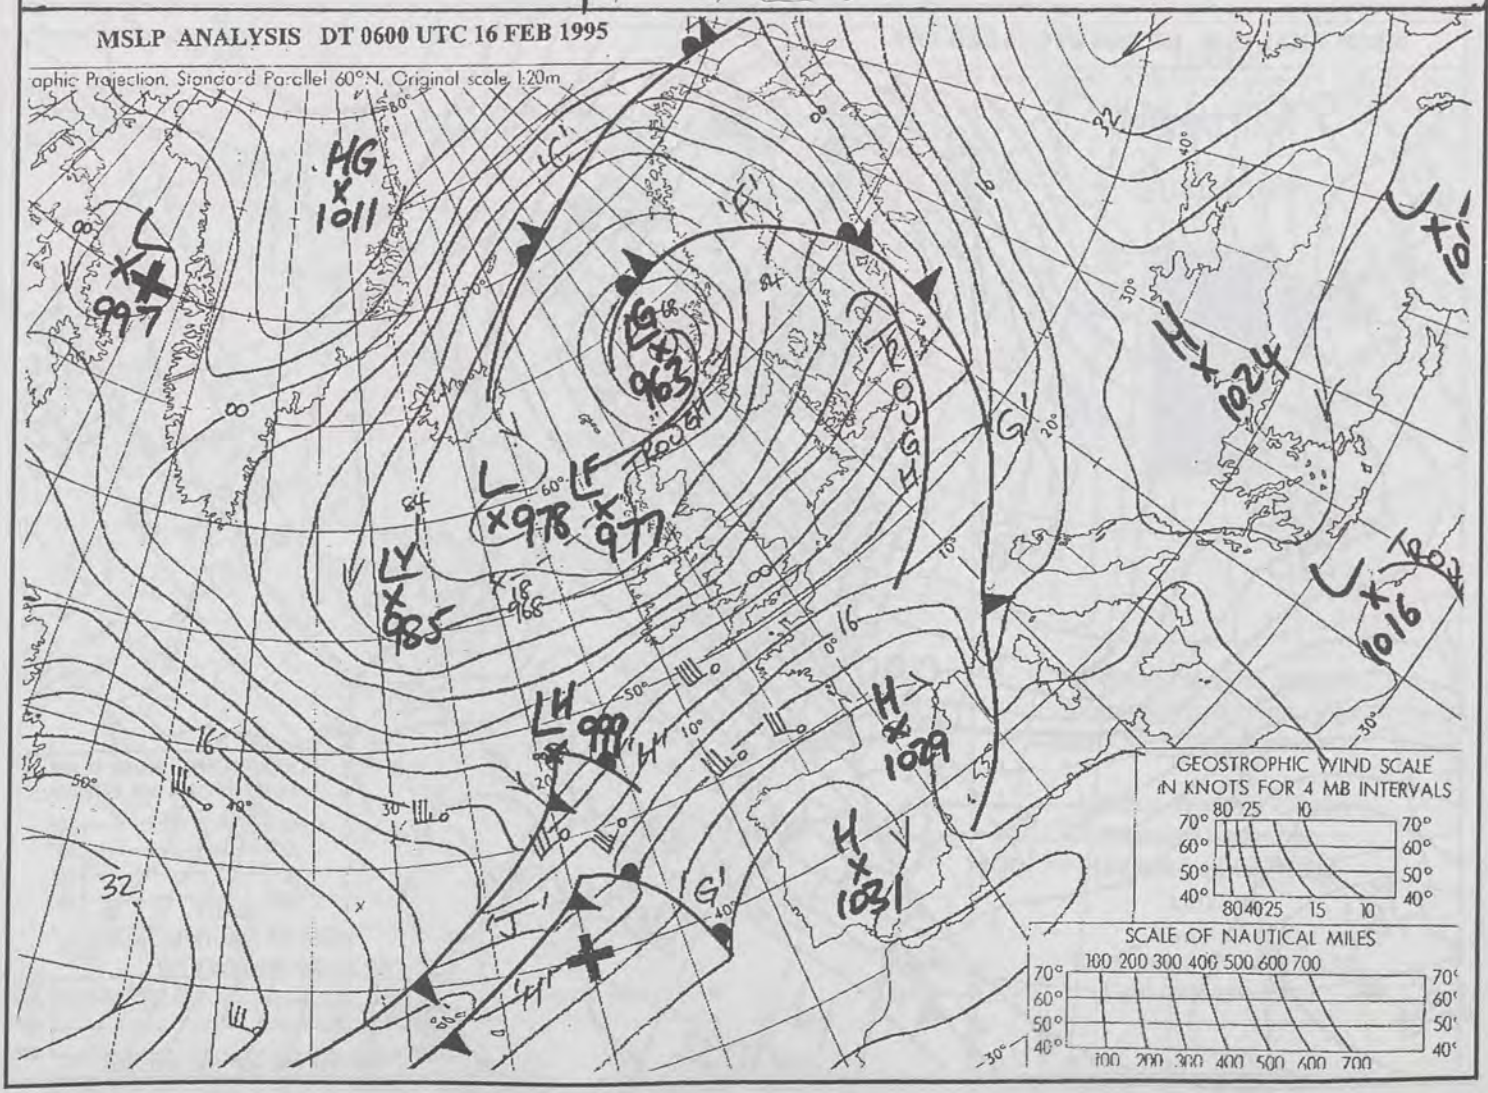 MSLP ANALYSIS DT 0600 UTC 16 FEB 1995
aphic Projection, Standard Parallel 60°N, Original scale 1:20m
80°
HG
1011
'C'
L
997
00
0°
'F'
LG
68
963
84
TROUGH
TROUGH
G'
20°
10
32
40°
30°
H
1024
L
00
84
L
978
60°
LF
977
LY
985
18
968
10°
00
16
0°
L
1016
TRO
50°
10°
LH
999
"H"
20°
16
50°
40°
30
H
1029
H
1031
G'
40°
32
'J'
'H'
30°
30°
GEOSTROPHIC WIND SCALE
IN KNOTS FOR 4 MB INTERVALS
80 25 10
70° 70°
60° 60°
50° 50°
40° 40°
80 40 25 15 10
SCALE OF NAUTICAL MILES
100 200 300 400 500 600 700
70° 70°
60° 60°
50° 50°
40° 40°
100 200 300 400 500 600 700